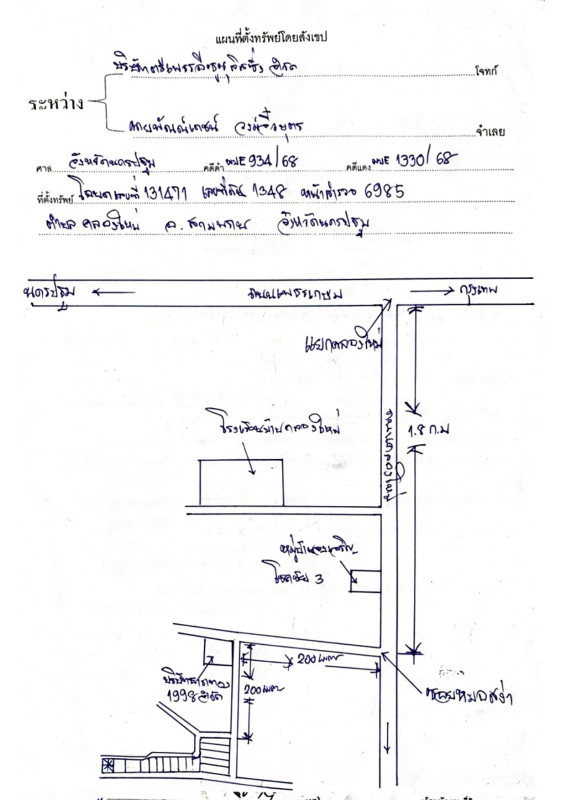 แผนที่ตั้งทรัพย์โดยสังเขป
บริษัทตรีเพชรอีซูซุลิสซิ่ง จำกัด โจทก์
ระหว่าง
จำเลย
ศาล จังหวัดนครปฐม คดีดำ ผบE 934/68 คดีแดง ผบE 1330/68
ที่ตั้งทรัพย์ โฉนดเลขที่ 131471 เลขที่ดิน 1348 หน้าสำรวจ 6985
ตำบล คลองใหม่ อ. สามพราน จังหวัดนครปฐม
นครปฐม ถนนเพชรเกษม กรุงเทพ
แยกคลองใหม่
ถนนคลองใหม่
1.8 ก.ม
โรงเรียนบ้านคลองใหม่
หมู่บ้านทองเจริญ
โชคชัย 3
200 เมตร
บริษัท
1998 จำกัด
200 เมตร
ซอยหมอสง่า